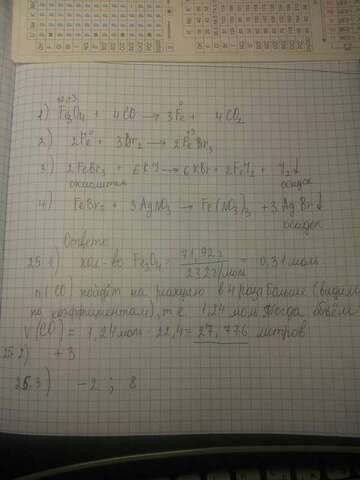 +2,+3 0
1) Fe₃O₄ + 4CO → 3Fe + 4CO₂
0 +3
2) 2Fe + 3Br₂ → 2FeBr₃
3) 2FeBr₃ + 6KI → 6KBr + 2FeI₂ + I₂↓
окислитель осадок
4) FeBr₃ + 3AgNO₃ → Fe(NO₃)₃ + 3AgBr↓
осадок
Ответы
25.1) кол-во Fe₃O₄ = 71,92г / 232г/моль = 0,31 моль
n(CO) пойдёт на реакцию в 4 раза больше (видимо
по коэффициентам), т.е. 1,24 моль. Тогда объём
V(CO) = 1,24 моль · 22,4 = 27,776 литров
25.2) +3
25.3) -2 ; 8